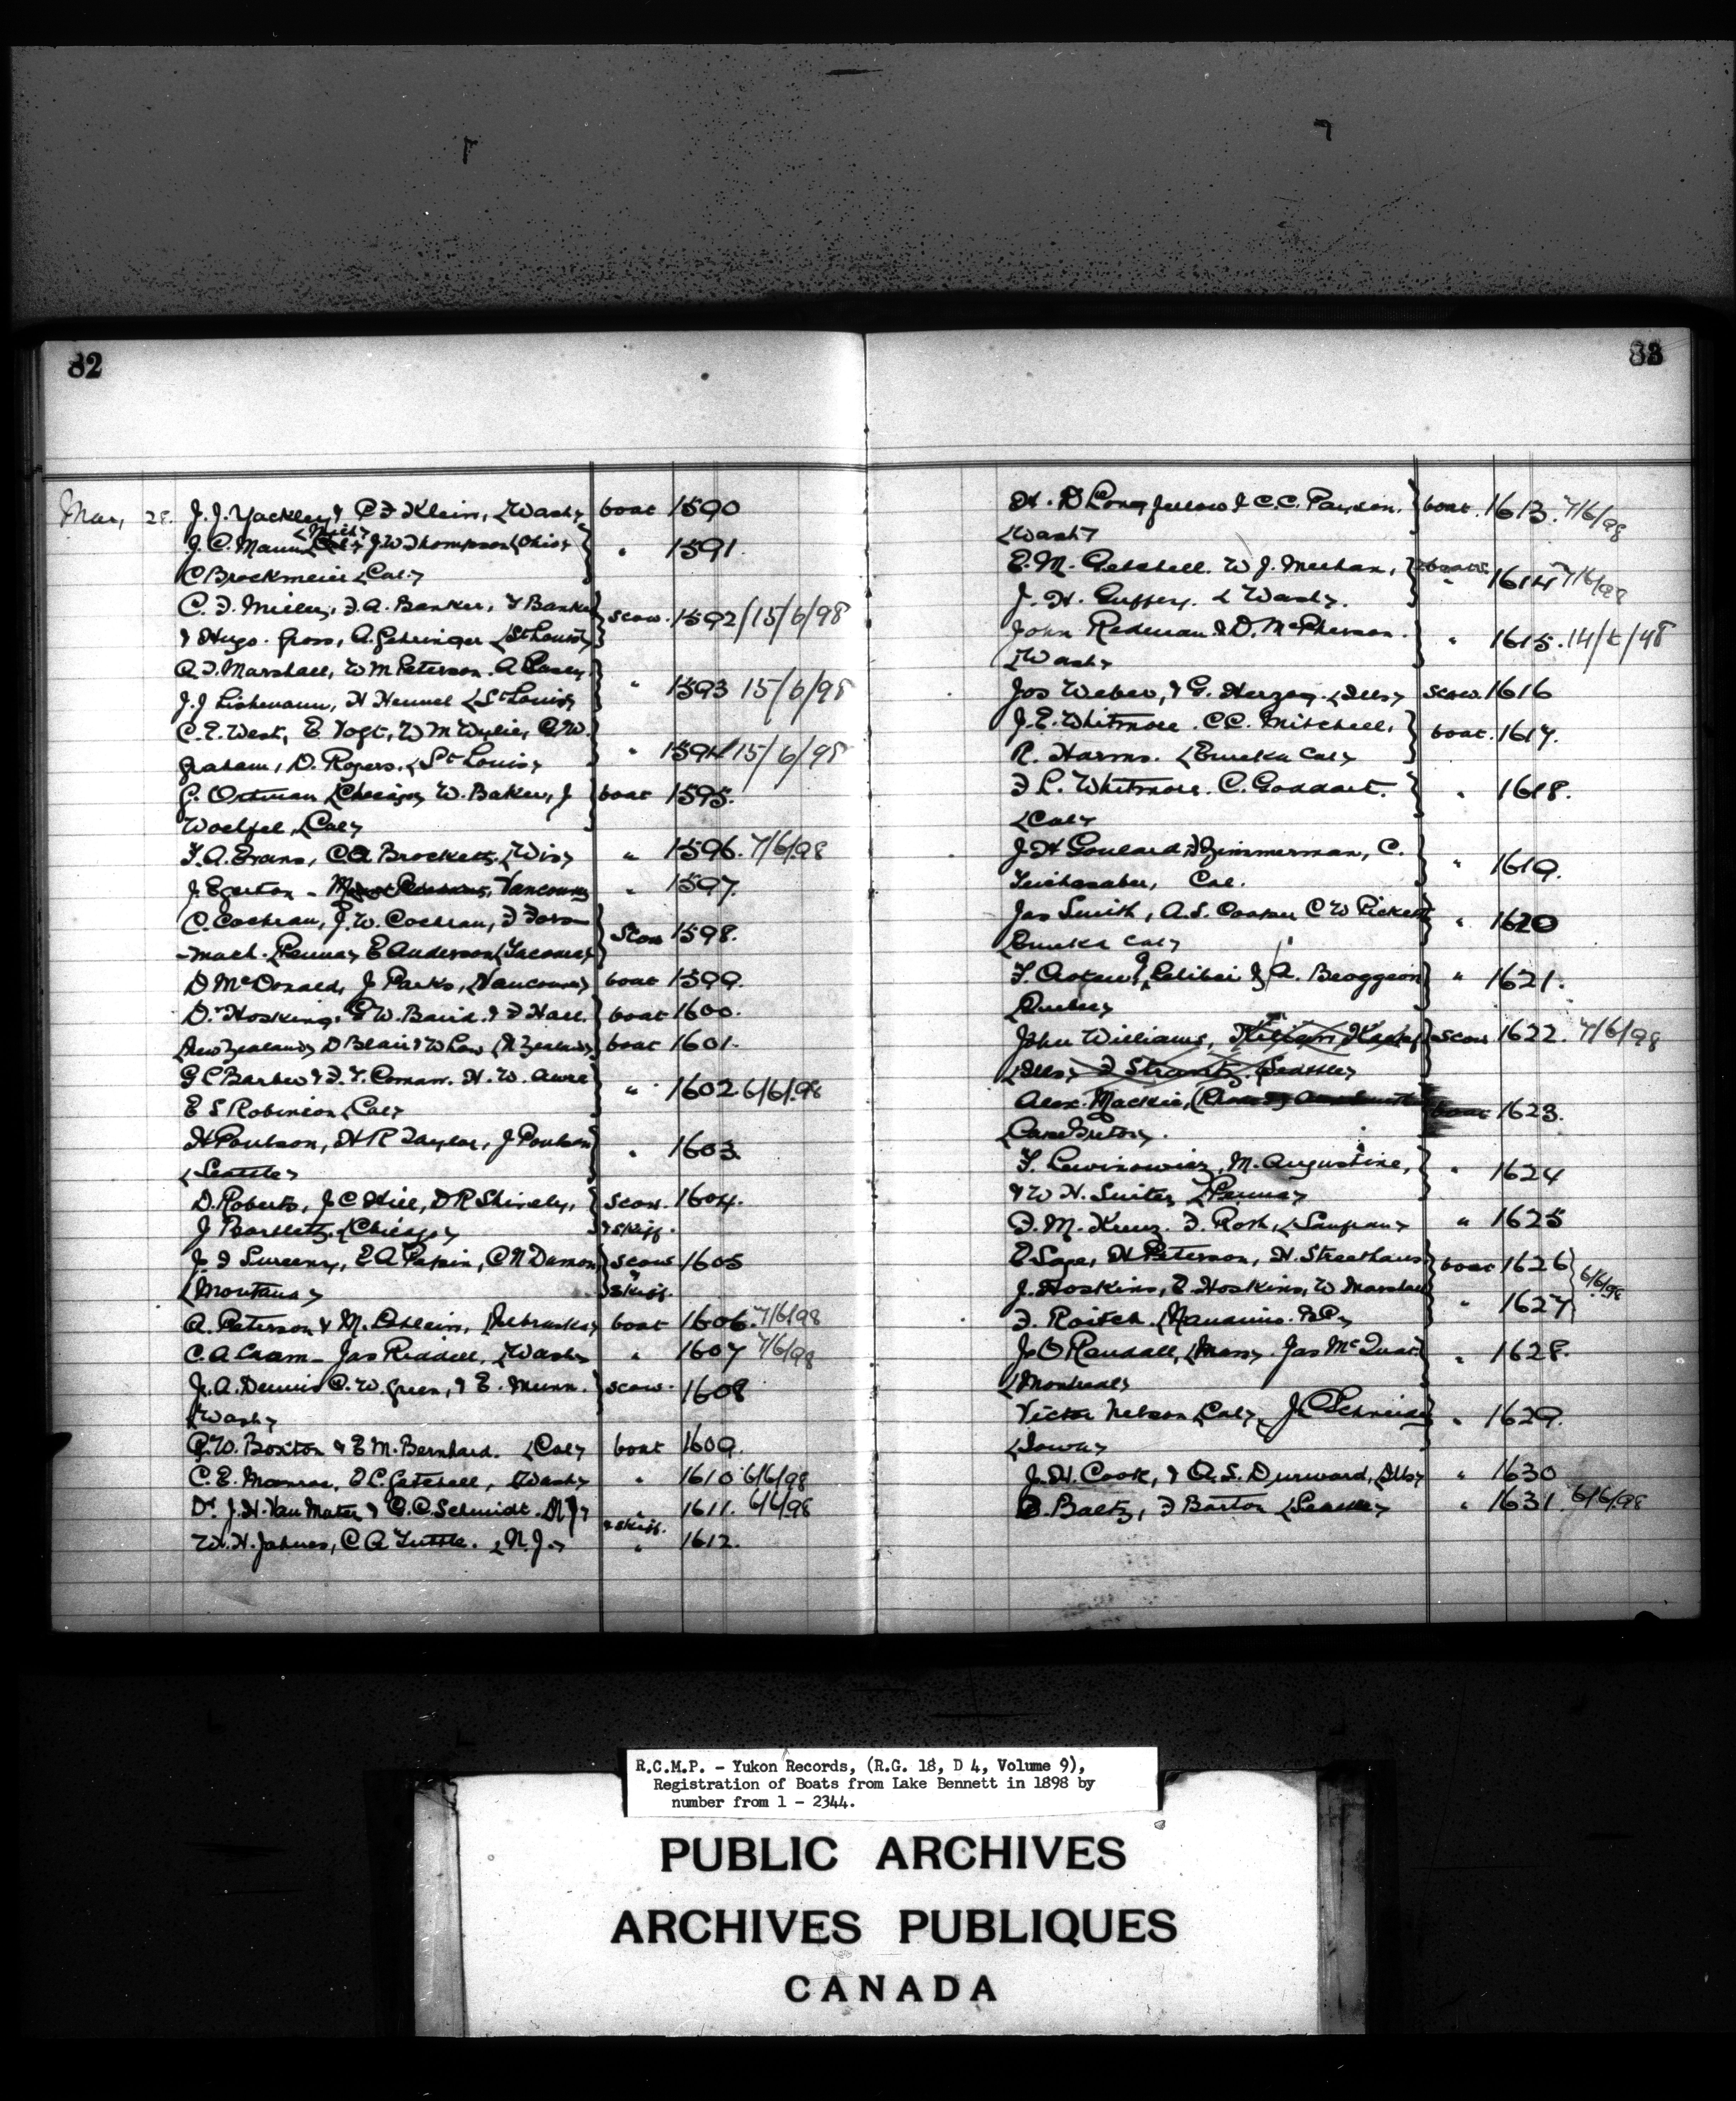 82
Mar, 28. J. J. Yackley & C F Klein, (Wash) boat 1590
(Mich)
J. C. Mann J W Thompson (Ohio) " 1591.
C Brockmeier (Cal.)
C. F. Miller, F. A. Banker, F Banker scow. 1592 / 15/6/98
& Hugo. Gross, A. Gehringer (St Louis)
A F. Marshall, W M Peterson. A Casey, " 1593 15/6/98
J. J Lishmann, H Hennel (St Louis)
C. E. West, E Vogt, W M Wylie, G W. " 1594 / 15/6/98
Graham, D. Rogers. (St Louis)
G. Ortman (Chicago) W. Baker, J boat 1595.
Woelfel, (Cal)
F. A. Evans, C A Brockett. (Wis) " 1596. 7/6/98
J. Egerton - Vancouver " 1597.
C. Cochran, J. W. Cochran, F Fors- scow 1598.
-mach. (Penna) E Anderson (Tacoma)
D McDonald, J Parks, (Vancouver) boat 1599.
Dr Hosking. G W. Baird. & F Hall. boat 1600.
(New Zealand) D Blair & W Law (N Zealand) boat 1601.
G C Barber & F. T. Coman. H. W. " 1602 6/6/98
E S Robinson (Cal)
H Poulson, H R Taylor, J Poulson " 1603.
(Seattle)
D. Roberts, J C Hill, D R Shively, scow. 1604.
J Bartlett. (Chicago) & skiff.
J F Sweeny, E A Papin, C N Damon scow 1605
(Montana) & skiff.
A. Peterson & M. (Nebraska) boat 1606. 7/6/98
C. A Cram - Jas Riddell, (Wash) " 1607 7/6/98
J. A. Dennis C. W. Green, & E. Munn. scow. 1608
(Wash)
G. W. Boxton & E M. Bernhard. (Cal) boat 1609.
C. E. Monroe, E C. Getchell, (Wash) " 1610 6/6/98
Dr J. H. Van Mater & C. C. Schmidt. N J) " 1611. 6/6/98
& skiff.
W. H. Jahnes, C A Tuttle. (N. J.) " 1612.
83
H. D Longfellow & C. C. Paulson. boat. 1613. 7/6/98
(Wash)
E. M. Getchell. W J. Meehan, " 1614 7/6/98
J. H. Guffey. (Wash).
John Redman & D. McPherson. " 1615. 14/6/98
(Wash)
Jos Weber, & G. Herzog. (Ills) scow. 1616
J. E. Whitmore. C C. Mitchell, boat. 1617.
R. Harms. (Eureka Cal)
F L. Whitmore. C. Goddart. " 1618.
(Cal)
J H Goulard F Zimmerman, C. " 1619.
Teichgraber, Cal.
Jas Smith, A. S. Cooper C W Pickett " 1620
(Eureka Cal)
& A. " 1621.
Quebec)
John Williams, scow 1622. 7/6/98
(Ills) F Strantz. (Seattle)
Alex. Mackie, boat 1623.
(Cape Breton).
F. Lewinowiez, M. Augustine, " 1624
& W H. Suiter (Penna)
F. M. Kunz. F. Roth, (Sanfran) " 1625
E Sage, H Peterson, H. Streethaus boat 1626
J. Hoskins, E. Hoskins, W Marshall " 1627 6/6/98
F. Roitch. (Nanaimo. B.C.)
J. O Randall, (Mass) Jas McQuat " 1628.
(Montreal)
Victor Nelson (Cal) J. C Schneider " 1629.
(Iowa)
J. H. Cook, & A. S. Durward, (Ills) " 1630
B. Baltz, F Barton (Seattle) " 1631. 6/6/98
R.C.M.P. - Yukon Records, (R.G. 18, D 4, Volume 9),
Registration of Boats from Lake Bennett in 1898 by
number from 1 - 2344.
PUBLIC ARCHIVES
ARCHIVES PUBLIQUES
CANADA